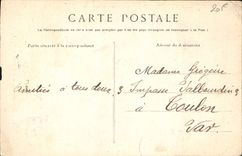 20F
CARTE POSTALE
Partie réservée à la correspondance
Adresse du destinataire
Madame Grégoire
Amitiés à tous deux
3 Impasse
à
Toulon
Var